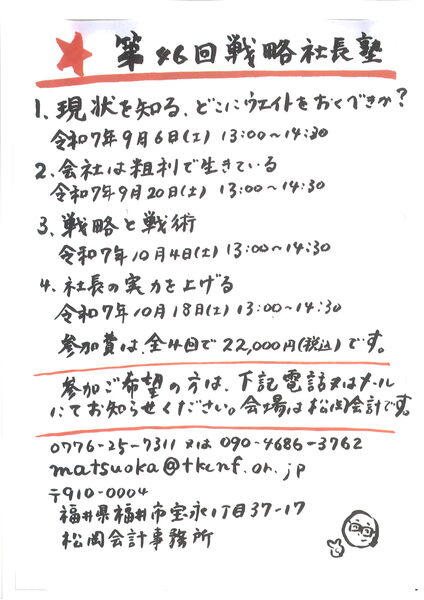 第46回戦略社長塾
1. 現状を知る、どこにウエイトをおくべきか?
令和7年9月6日(土) 13:00~14:30
2. 会社は粗利で生きている
令和7年9月20日(土) 13:00~14:30
3. 戦略と戦術
令和7年10月4日(土) 13:00~14:30
4. 社長の実力を上げる
令和7年10月18日(土) 13:00~14:30
参加費は、全4回で22,000円(税込)です。
参加ご希望の方は、下記電話又はメール
にてお知らせください。会場は松岡会計です。
0776-25-7311 又は 090-4686-3762
matsuoka@tkcnf.or.jp
〒910-0004
福井県福井市宝永1丁目37-17
松岡会計事務所